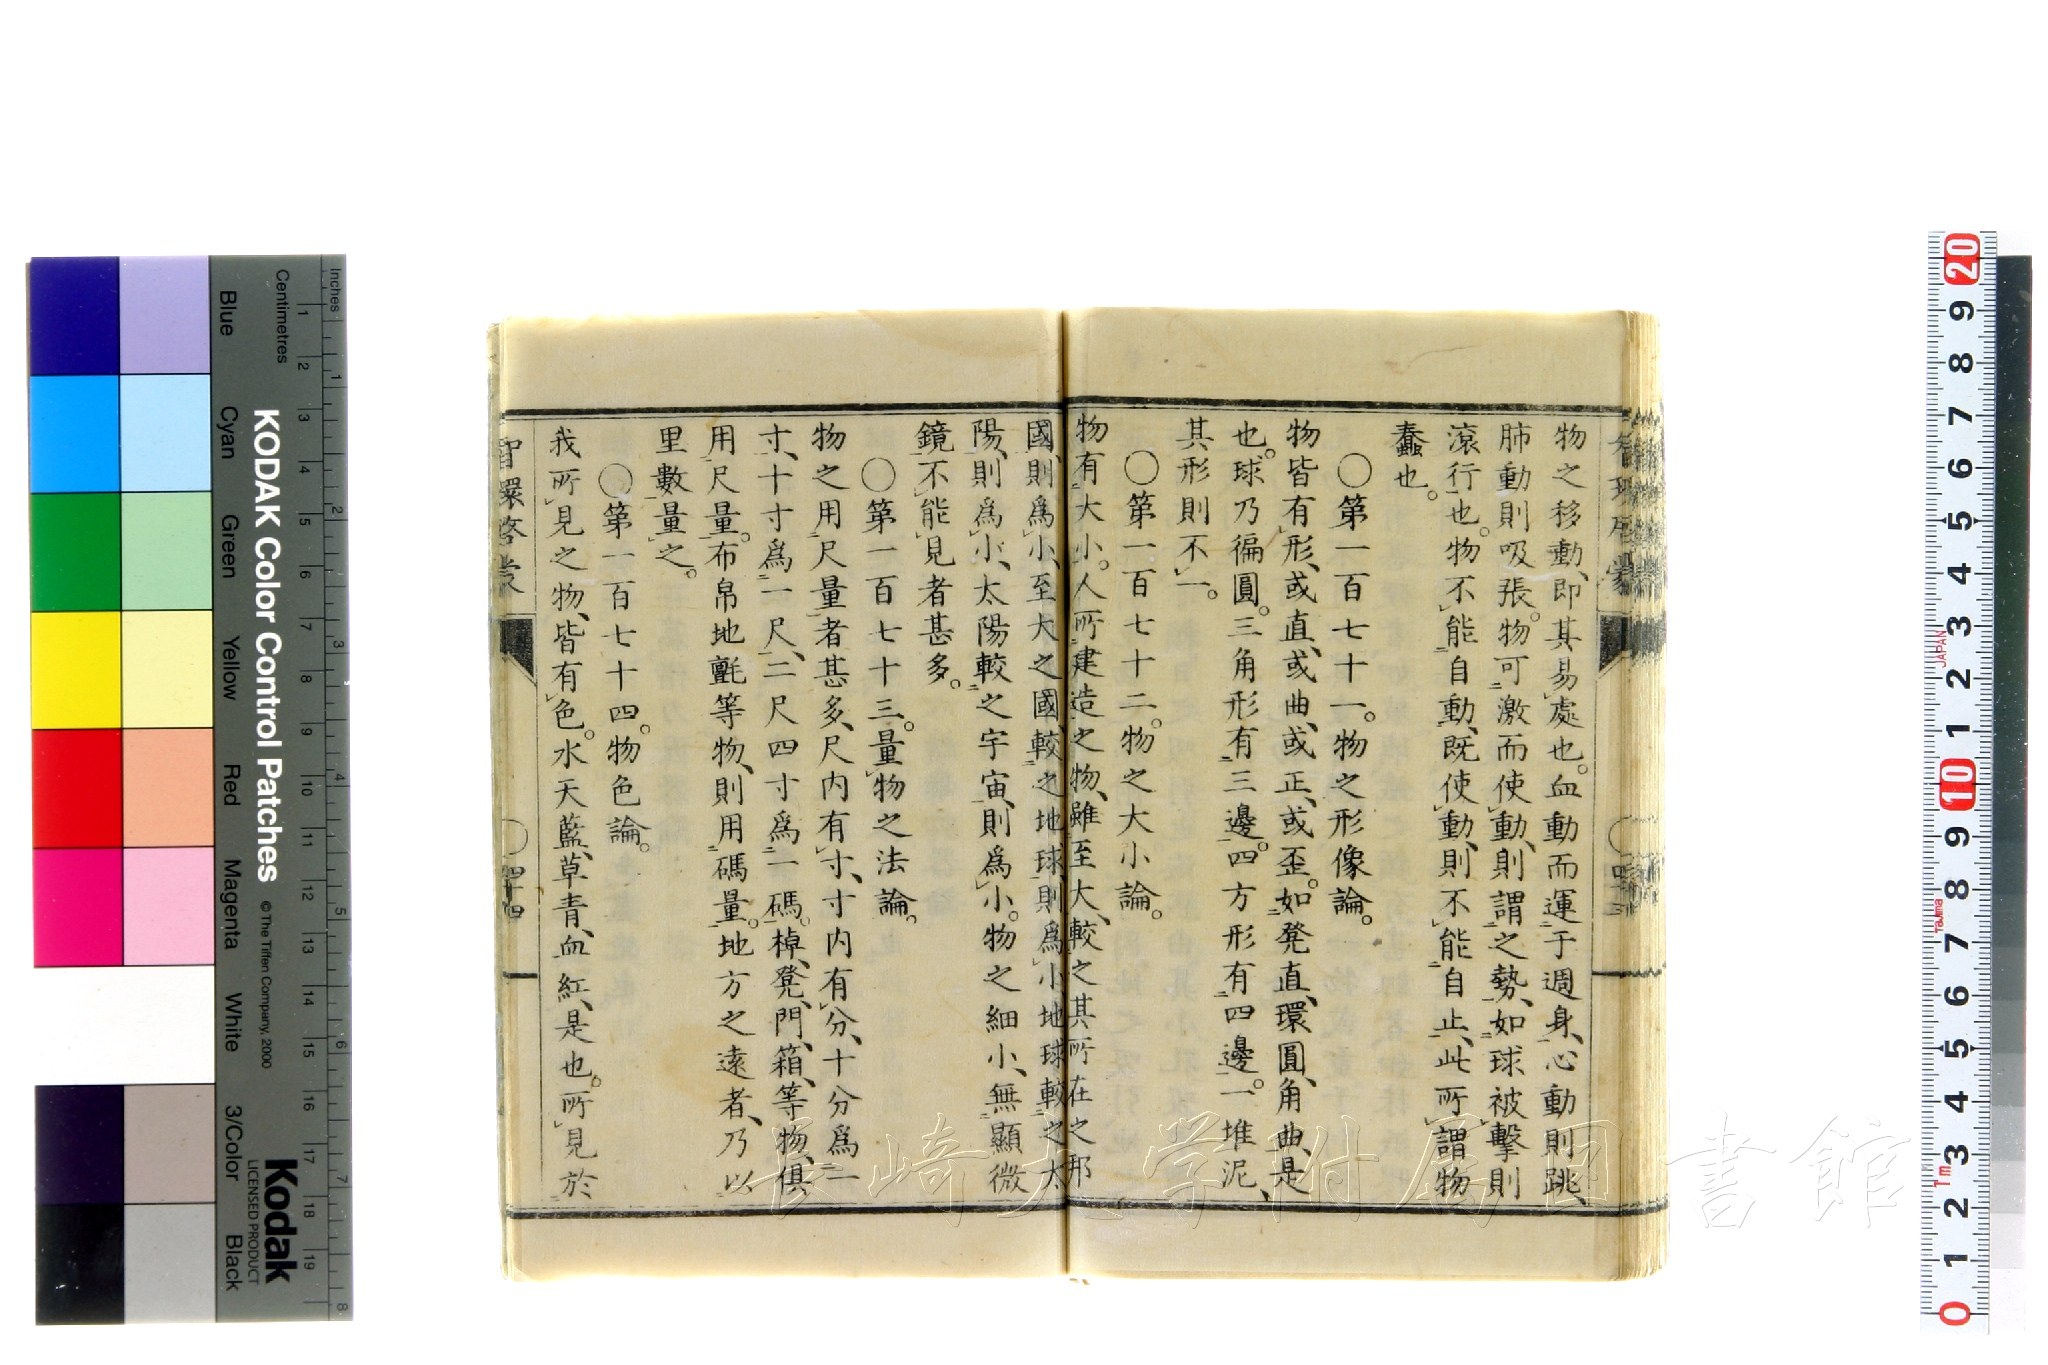 智環啓蒙
四十三
物之移動、即其易處也。血動而運于週身、心動則跳、
肺動則吸張。物可激而使動、則謂之勢、如球被擊則
滾行也。物不能自動、既使動、則不能自止、此所謂物
蠢也。
〇第一百七十一。物之形像論。
物皆有形、或直、或曲、或正、或歪。如凳直、環圓、角曲、是
也。球乃徧圓。三角形有三邊。四方形有四邊。一堆泥、
其形則不一。
〇第一百七十二。物之大小論。
物有大小。人所建造之物、雖至大、較之其所在之那
國、則爲小、至大之國、較之地球、則爲小、地球較之太
陽、則爲小、太陽較之宇宙、則爲小。物之細小、無顯微
鏡不能見者甚多。
〇第一百七十三。量物之法論。
物之用尺量者甚多、尺内有寸、寸内有分、十分爲一
寸、十寸爲一尺、二尺四寸爲一碼。棹、凳、門、箱、等物、俱
用尺量。布帛地氈等物、則用碼量。地方之遠者、乃以
里數量之。
〇第一百七十四。物色論。
我所見之物、皆有色。水天藍、草青、血紅、是也。所見於
智環啓蒙
〇四十四
長崎大学附属図書館
Inches
Centimetres
Blue
Cyan
Green
Yellow
Red
Magenta
White
3/Color
Black
KODAK Color Control Patches
© The Tiffen Company, 2000
Kodak
LICENSED PRODUCT
1 2 3 4 5 6 7 8 9 10 11 12 13 14 15 16 17 18 19
1 2 3 4 5 6 7 8
20 9 8 7 6 5 4 3 2 1 10 9 8 7 6 5 4 3 2 1 0
JAPAN
Tajima